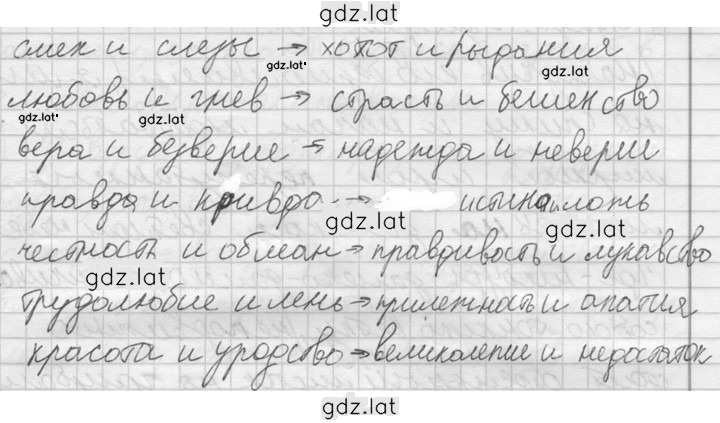 gdz.lat
смех и слезы → хохот и рыдания
gdz.lat gdz.lat
любовь и гнев → страсть и бешенство
gdz.lat gdz.lat
вера и безверие → надежда и неверии
правда и кривда → истина и ложь
gdz.lat gdz.lat
честность и обман → правдивость и лукавство
gdz.lat
трудолюбие и лень → прилежность и апатия
gdz.lat gdz.lat
красота и уродство → великолепие и недостаток
gdz.lat